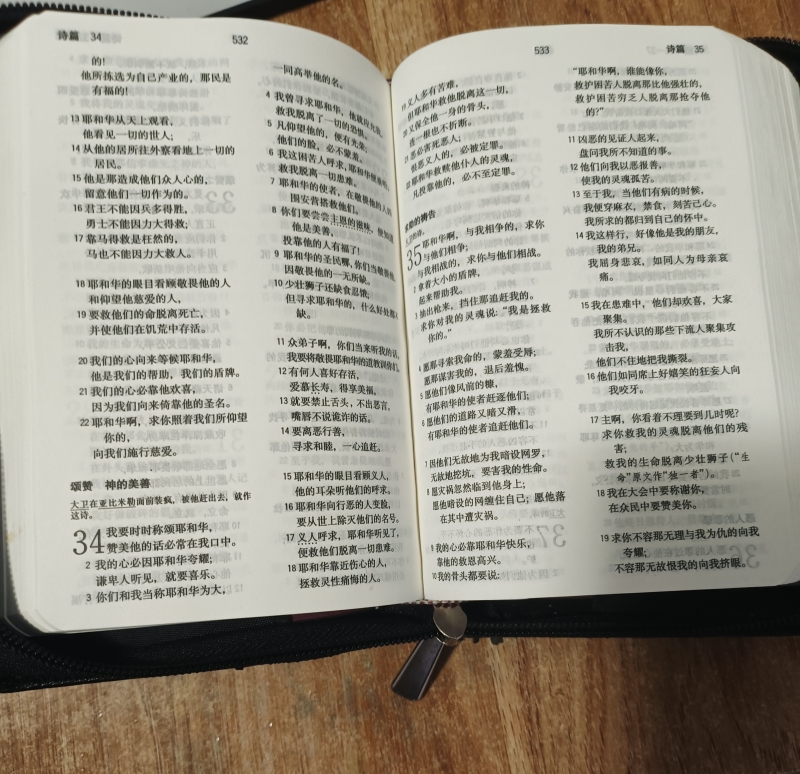 诗篇 34
532
的!
他所拣选为自己产业的，那民是
有福的!
13 耶和华从天上观看，
他看见一切的世人;
14 从他的居所往外察看地上一切的
居民。
15 他是那造成他们众人心的，
留意他们一切作为的。
16 君王不能因兵多得胜，
勇士不能因力大得救;
17 靠马得救是枉然的，
马也不能因力大救人。
18 耶和华的眼目看顾敬畏他的人
和仰望他慈爱的人，
19 要救他们的命脱离死亡，
并使他们在饥荒中存活。
20 我们的心向来等候耶和华，
他是我们的帮助，我们的盾牌。
21 我们的心必靠他欢喜，
因为我们向来倚靠他的圣名。
22 耶和华啊，求你照着我们所仰望
你的，
向我们施行慈爱。
颂赞 神的美善
大卫在亚比米勒面前装疯，被他赶出去，就作
这诗。
34 我要时时称颂耶和华，
赞美他的话必常在我口中。
2 我的心必因耶和华夸耀;
谦卑人听见，就要喜乐。
3 你们和我当称耶和华为大，
一同高举他的名。
4 我曾寻求耶和华，他就应允我，
救我脱离了一切的恐惧。
5 凡仰望他的，便有光荣;
他们的脸，必不蒙羞。
6 我这困苦人呼求，耶和华便垂听，
救我脱离一切患难。
7 耶和华的使者，在敬畏他的人的
四围安营搭救他们。
8 你们要尝尝主恩的滋味，便知道
他是美善，
投靠他的人有福了!
9 耶和华的圣民啊，你们当敬畏他，
因敬畏他的一无所缺。
10 少壮狮子还缺食忍饿，
但寻求耶和华的，什么好处都不
缺。
11 众弟子啊，你们当来听我的话，
我要将敬畏耶和华的道教训你们。
12 有何人喜好存活，
爱慕长寿，得享美福，
13 就要禁止舌头，不出恶言，
嘴唇不说诡诈的话。
14 要离恶行善，
寻求和睦，一心追赶。
15 耶和华的眼目看顾义人，
他的耳朵听他们的呼求。
16 耶和华向行恶的人变脸，
要从世上除灭他们的名号。
17 义人呼求，耶和华听见了，
便救他们脱离一切患难。
18 耶和华靠近伤心的人，
拯救灵性痛悔的人。
533
诗篇 35
19 义人多有苦难，
但耶和华救他脱离这一切，
20 又保全他一身的骨头，
连一根也不折断。
21 恶必害死恶人;
恨恶义人的，必被定罪。
22 耶和华救赎他仆人的灵魂，
凡投靠他的，必不至定罪。
求助的祷告
35 耶和华啊，与我相争的，求你
与他们相争;
与我相战的，求你与他们相战。
2 拿着大小的盾牌，
起来帮助我。
3 抽出枪来，挡住那追赶我的。
求你对我的灵魂说: “我是拯救
你的。”
4 愿那寻索我命的，蒙羞受辱;
愿那谋害我的，退后羞愧。
5 愿他们像风前的糠，
有耶和华的使者赶逐他们;
6 愿他们的道路又暗又滑，
有耶和华的使者追赶他们。
7 因他们无故地为我暗设网罗，
无故地挖坑，要害我的性命。
8 愿灾祸忽然临到他身上;
愿他暗设的网缠住自己; 愿他落
在其中遭灾祸。
9 我的心必靠耶和华快乐，
靠他的救恩高兴。
10 我的骨头都要说:
“耶和华啊，谁能像你，
救护困苦人脱离那比他强壮的，
救护困苦穷乏人脱离那抢夺他
的?”
11 凶恶的见证人起来，
盘问我所不知道的事。
12 他们向我以恶报善，
使我的灵魂孤苦。
13 至于我，当他们有病的时候，
我便穿麻衣，禁食，刻苦己心。
我所求的都归到自己的怀中。
14 我这样行，好像他是我的朋友，
我的弟兄。
我屈身悲哀，如同人为母亲哀
痛。
15 我在患难中，他们却欢喜，大家
聚集。
我所不认识的那些下流人聚集攻
击我，
他们不住地把我撕裂。
16 他们如同席上好嬉笑的狂妄人向
我咬牙。
17 主啊，你看着不理要到几时呢?
求你救我的灵魂脱离他们的残
害;
救我的生命脱离少壮狮子(“生
命”原文作“独一者”)。
18 我在大会中要称谢你，
在众民中要赞美你。
19 求你不容那无理与我为仇的向我
夸耀;
不容那无故恨我的向我挤眼。